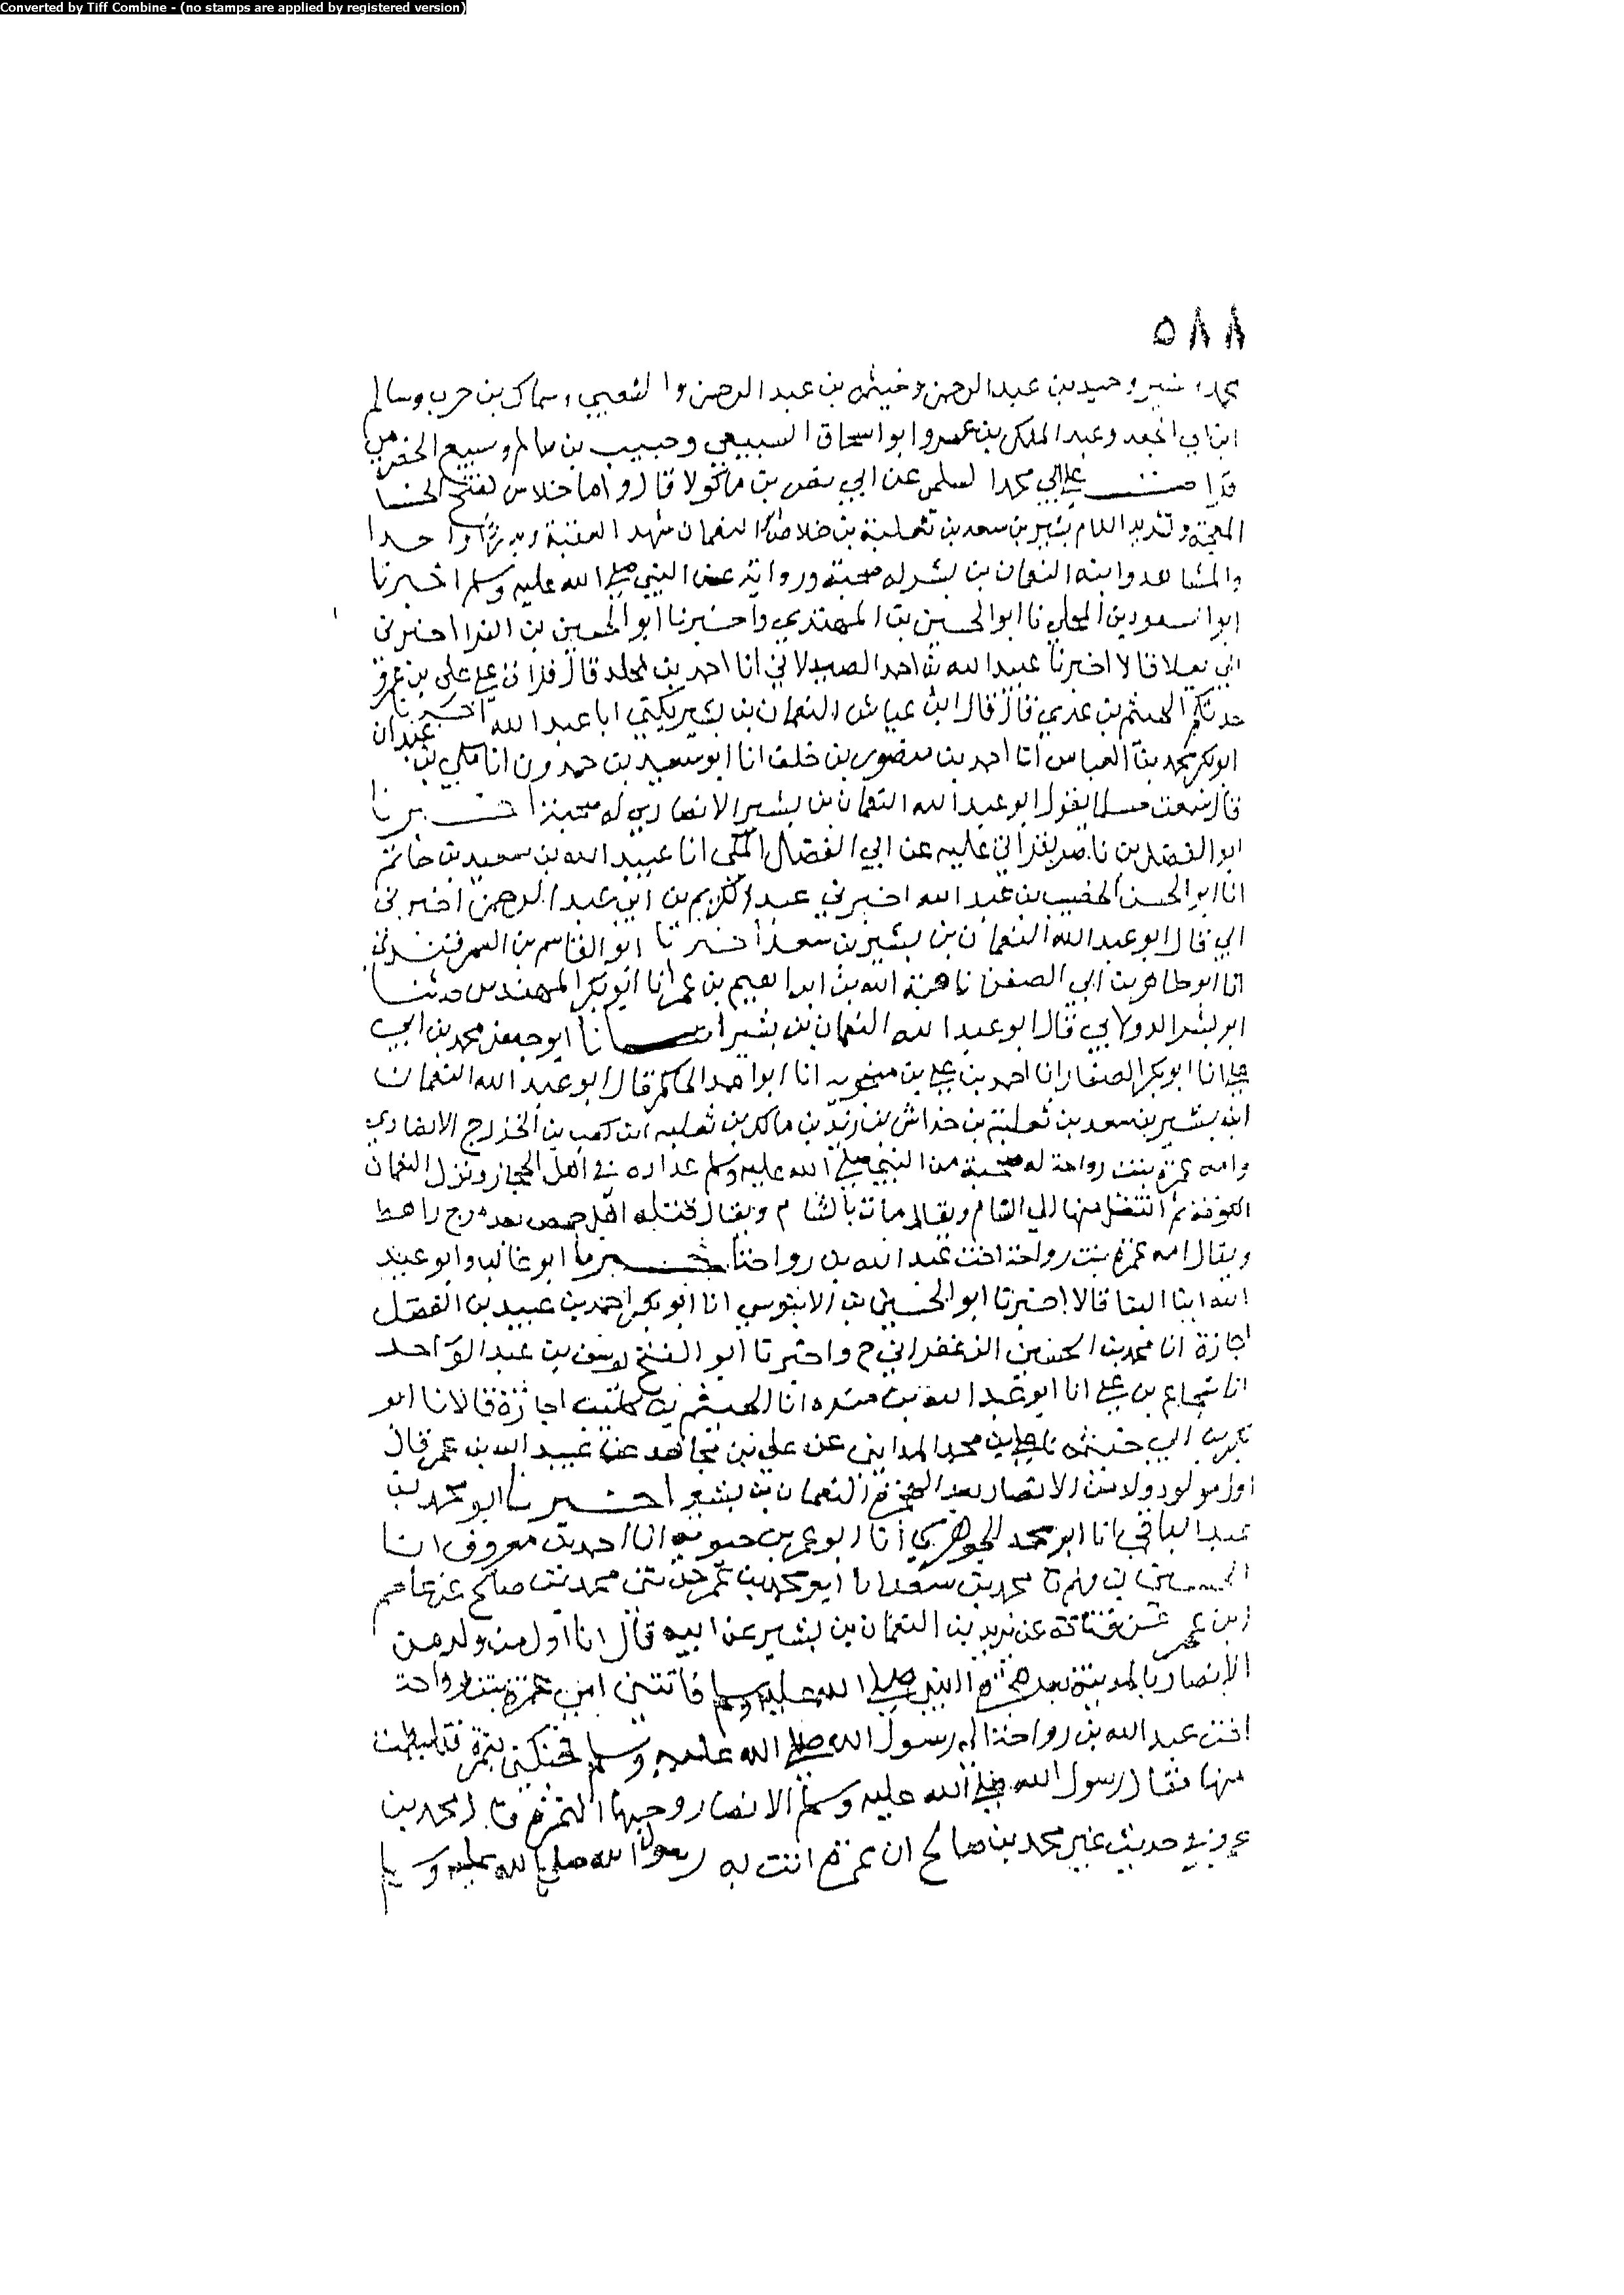 Converted by Tiff Combine - (no stamps are applied by registered version)
٥٨٨
وحميد بن عبد الرحمن وخيثمه بن عبد الرحمن والشعبي وسماك بن حرب وسالم
ابن ابي الجعد وعبد الملك بن عمير وابو اسحاق السبيعي وحبيب بن سالم وسبيع الحضرمي
قرات على ابي محمد السلمي عن ابي نصر بن ماكولا قال واما خلاس بفتح الخا
المعجمة وتشديد اللام بشير بن سعد بن ثعلبة بن خلاس ابو النعمان شهد العقبة وبدرا واحدا
والمشاهد وابنه النعمان بن بشير له صحبة ورواية عن النبي صلى الله عليه وسلم اخبرنا
ابوا سعود بن المجلي نا ابو الحسين بن المهتدي واخبرنا ابو الحسين بن الفرا اخبرني
ابي يعلا قالا اخبرنا عبيد الله بن احمد الصيدلاني انا احمد بن مخلد قال قرات على علي بن عمرو
حدثكم الهيثم بن عدي قال قال ابن عياش النعمان بن بشير يكنى ابا عبد الله اخبرنا
ابو بكر محمد بن العباس انا احمد بن منصور بن خلف انا ابو سعيد بن حمدون انا مكي بن عبدان
قال سمعت مسلما يقول ابو عبد الله النعمان بن بشير الانصاري له صحبة اخبرنا
ابو الفضل بن ناصر بقراتي عليه عن ابي الفضل المكي انا عبيد الله بن سعيد بن حاتم
انا ابو الحسن الخصيب بن عبد الله اخبرني عبد الكريم بن ابي عبد الرحمن اخبرني
ابي قال ابو عبد الله النعمان بن بشير بن سعد اخبرنا ابو القاسم بن السمرقندي
انا ابو طاهر بن ابي الصقر نا هبة الله بن ابراهيم بن عمر انا ابو بكر المهندس حدثنا
ابو بشر الدولابي قال ابو عبد الله النعمان بن بشير انبانا ابو جعفر محمد بن ابي
علي انا ابو بكر الصفار انا احمد بن علي بن منجويه انا ابو احمد الحاكم قال ابو عبد الله النعمان
ابن بشير بن سعد بن ثعلبة بن خداش بن زيد بن مالك بن ثعلبه ابن كعب بن الخزرج الانصاري
وامه عمرة بنت رواحة له صحبة من النبي صلى الله عليه وسلم عداده في اهل الحجاز ونزل النعمان
الكوفة ثم انتقل منها الى الشام ويقال مات بالشام ويقال قتله اهل حمص بعد مرج راهط
ويقال امه عمرة بنت رواحة اخت عبد الله بن رواحة اخبرنا ابو غالب وابو عبد
الله ابنا البنا قالا اخبرنا ابو الحسين بن الابنوسي انا ابو بكر احمد بن عبيد بن الفضل
اجازة انا محمد بن الحسين الزعفراني ح واخبرنا ابو الفتح يوسف بن عبد الواحد
انا شجاع بن علي انا ابو عبد الله بن منده انا الهيثم بن كليب اجازة قالا انا ابو
بكر بن ابي خيثمه نا علي بن محمد المدايني عن علي بن مجاهد عن عبيد الله بن عمر قال
اول مولود ولد من الانصار بعد الهجرة النعمان بن بشير اخبرنا ابو محمد بن
عبد الباقي انا ابو محمد الجوهري انا ابو عمر بن حيويه انا احمد بن معروف انا
الحسين بن فهم نا محمد بن سعد انا ابو محمد بن عمر حدثني محمد بن صالح عن عاصم
ابن عمر بن قتادة عن يزيد بن النعمان بن بشير عن ابيه قال انا اول من ولد من
الانصار بالمدينة بعد هجرة النبي صلى الله عليه وسلم فاتتني امي عمرة بنت رواحة
اخت عبد الله بن رواحة الى رسول الله صلى الله عليه وسلم فحنكني بتمرة فتلمظت
منها فقال رسول الله صلى الله عليه وسلم الانصار وحبها التمر قال محمد بن
عمر وفي حديث غير محمد بن صالح ان عمرة اتت به رسول الله صلى الله عليه وسلم